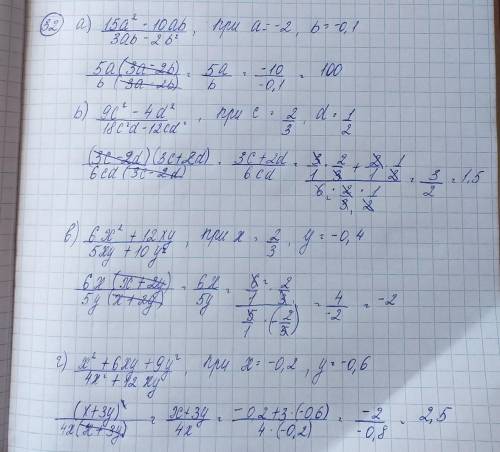 32 а) (15a² - 10ab)/(3ab - 2b²), при a = -2, b = -0,1
(5a(3a-2b))/(b(3a-2b)) = 5a/b = -10/-0,1 = 100
b) (9c² - 4d²)/(18c²d - 12cd²), при c = 2/3, d = 1/2
((3c-2d)(3c+2d))/(6cd(3c-2d)) = (3c+2d)/6cd = (3/1 · 2/3 + 2/1 · 1/2)/(6 · 2/3 · 1/2) = 3/2 = 1,5
в) (6x² + 12xy)/(5xy + 10y²), при x = 2/3, y = -0,4
(6x(x+2y))/(5y(x+2y)) = 6x/5y = (6/1 · 2/3)/(5/1 · (-2/5)) = 4/-2 = -2
г) (x² + 6xy + 9y²)/(4x² + 12xy), при x = -0,2, y = -0,6
(x+3y)²/(4x(x+3y)) = (x+3y)/4x = (-0,2+3·(-0,6))/(4·(-0,2)) = -2/-0,8 = 2,5